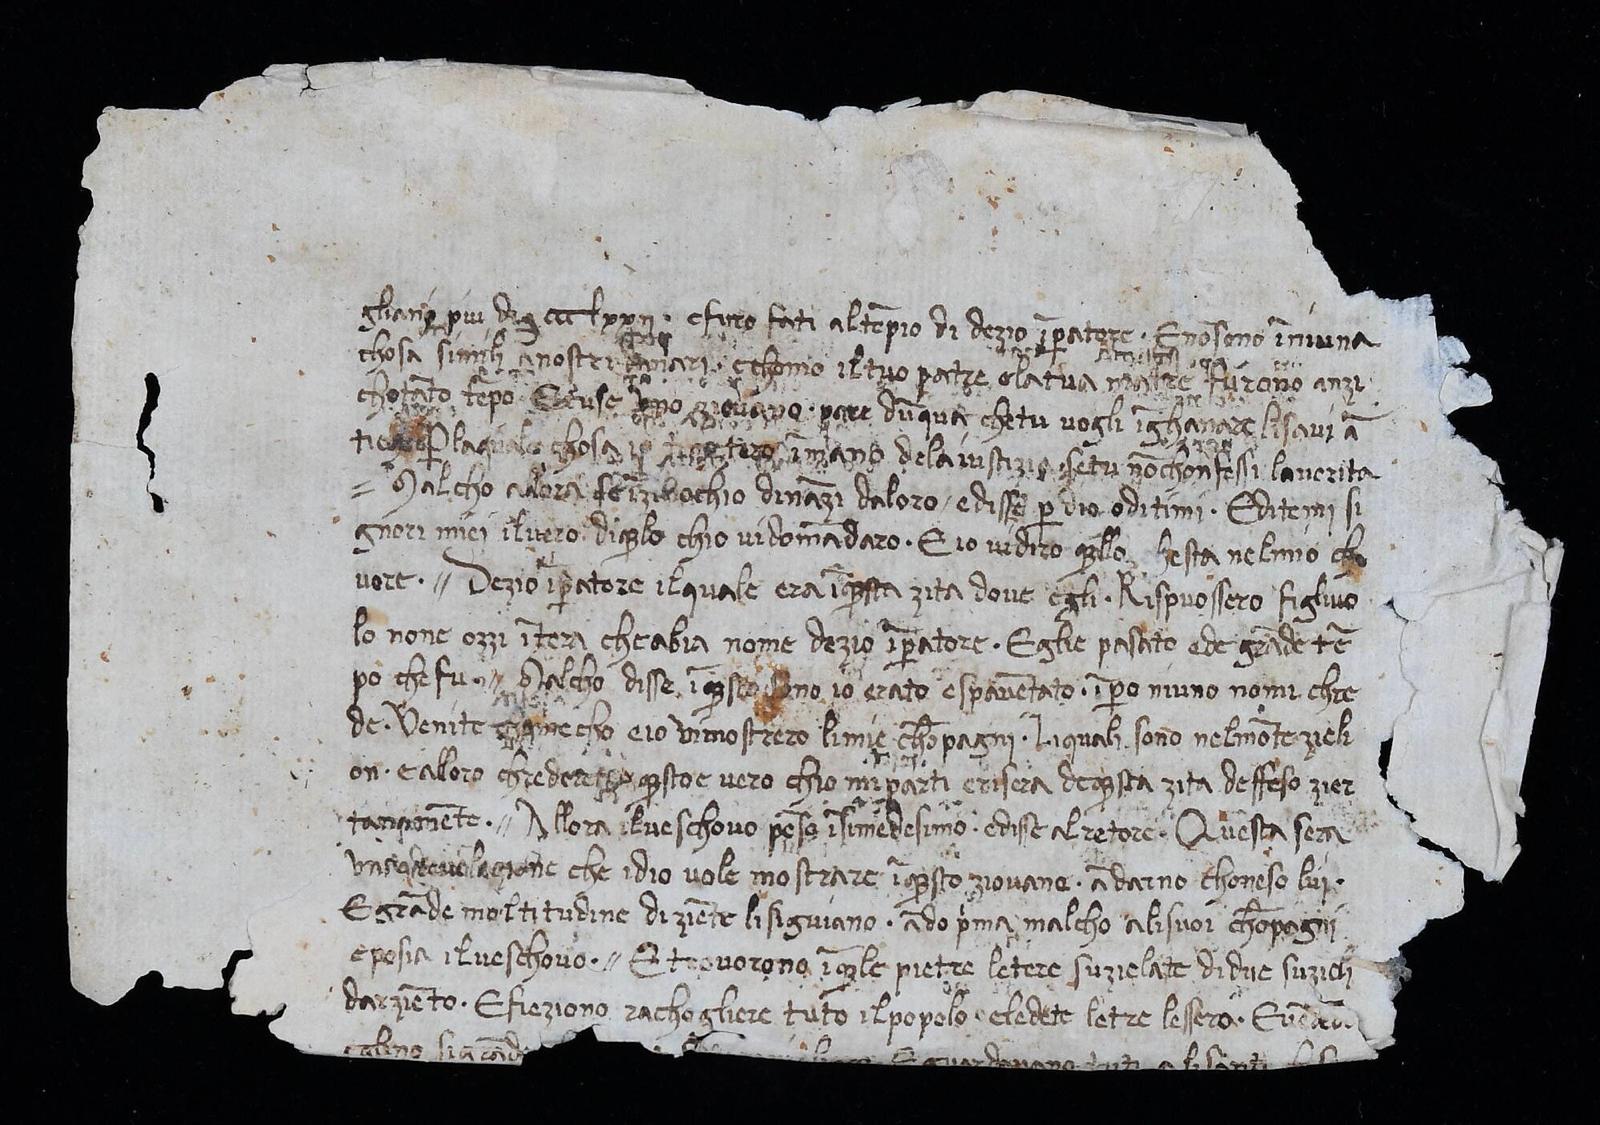 gliani piu di ccclxxii · efuro fati altēpio di dezio īpatore · Enosono īniuna
chosa simili anostri danari · echomo iltuo patre elatua matre furono anzi
chotāto tēpo · Etuse ziovano · pare dūqua chetu vogli īghanare lisavi ā
Plaquale chosa īmano dela iustizia · setu nōchonfessi laverita
= Malcho allora seīzinochio dināzi daloro / edisse p dio oditimi · Editemi si
gnori miei ilvero diqllo chio vidomādaro · E io vidiro qllo hesta nelmio cho
vore · // Dezio īpatore ilquale era īqsta zita dove egli · Rispuossero figliuo
lo none ozzi ītera cheabia nome dezio īpatore · Eglie pasato ede grāde tē
po chefu · // Malcho disse īqsto io erato espavētato · īpo niuno nomi chre
de · Venite mecho eio vimostrero limie chōpagni · Liquali sono nelmōte zieli
on · ealloro chrederete qstoe vero chio miparti erisera deqsta zita deffeso zier
tamēte · // Allora ilveschovo pēso īsimedesimo · edisse alretore · Questa sera
una revelazione che idio vole mostrare īqsto ziovane · ādarno choneso lui ·
E grāde moltitudine di ziēte lisiguiano · ādo pma malcho alisuoi chōpagni
eposia ilveschovo · // Etrovorono īqle pietre letere suzielate didue suzieli
darziēto · Efieziono rachogliere tuto ilpopolo eledete letre lessero ·
guardavano tuti alisanti